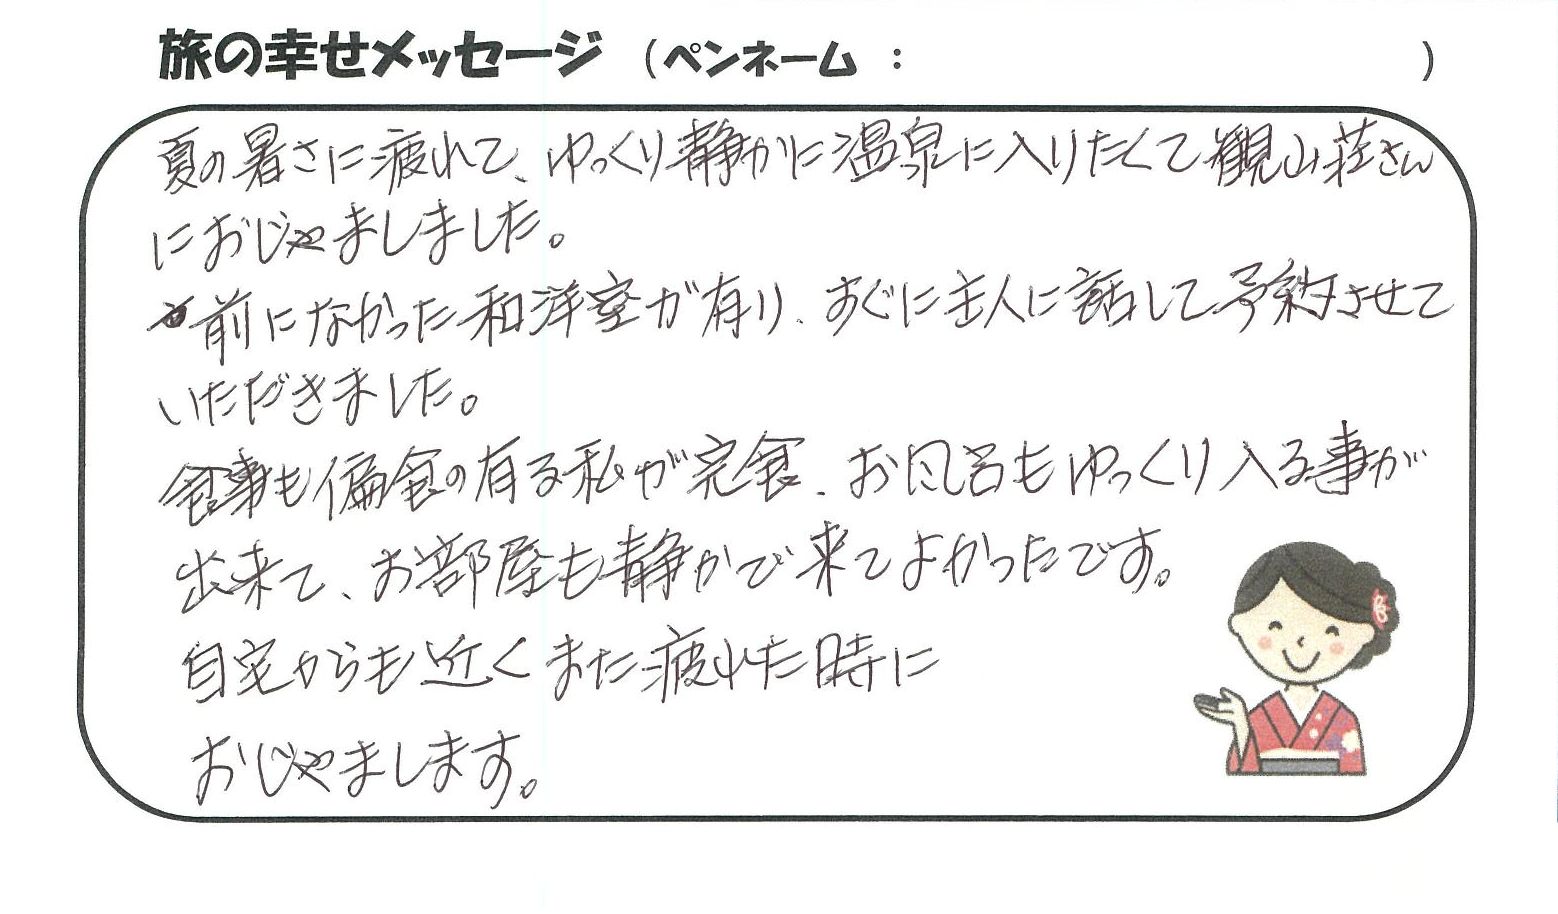 旅の幸せメッセージ （ペンネーム ： ）
夏の暑さに疲れて、ゆっくり静かに温泉に入りたくて観山荘さん
におじゃましました。
前になかった和洋室が有り、すぐに主人に話して予約させて
いただきました。
食事も偏食の有る私が完食、お風呂もゆっくり入る事が
出来て、お部屋も静かで来てよかったです。
自宅からも近くまた疲れた時に
おじゃまします。